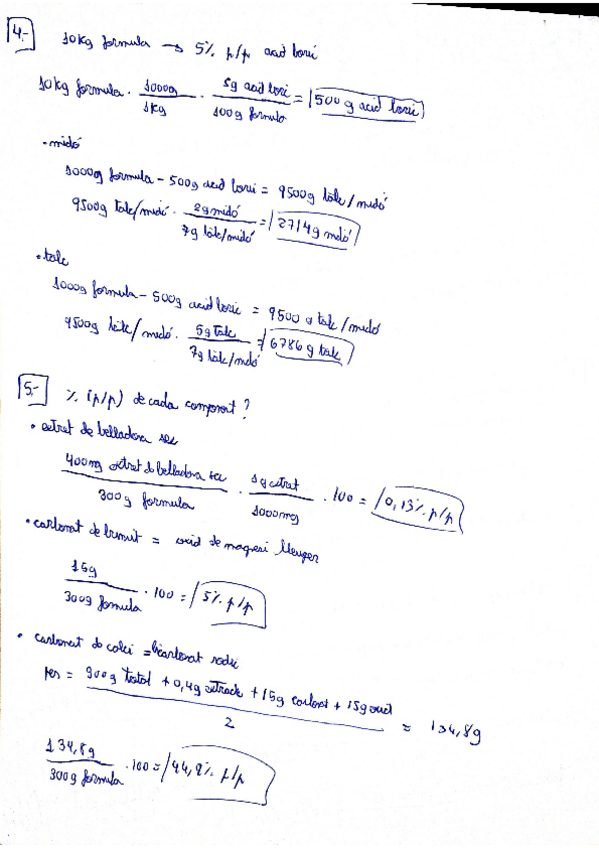 4.-
10Kg formula → 5% p/p acid bòric
10Kg formula · 1000g / 1Kg · 5g acid bòric / 100g formula = 500 g acid bòric
· midó
1000g formula - 500g acid bòric = 9500g talc/midó
9500g talc/midó · 2g midó / 7g talc/midó = 2714g midó
· talc
1000g formula - 500g acid bòric = 9500 g talc/midó
9500g talc/midó · 5g talc / 7g talc/midó = 6786 g talc
5.- % (p/p) de cada component?
· extret de belladona sec
400mg extret de belladona sec / 300g formula · 1g extret / 1000mg · 100 = 0,13% p/p
· carbonat de bismut = oxid de magnesi lleuger
15g / 300g formula · 100 = 5% p/p
· carbonat de calci = bicarbonat sodic
pes = 300g total + 0,4g + 15g carbonat + 15g oxid / 2 = 134,8g
134,8g / 300g formula · 100 = 44,9% p/p